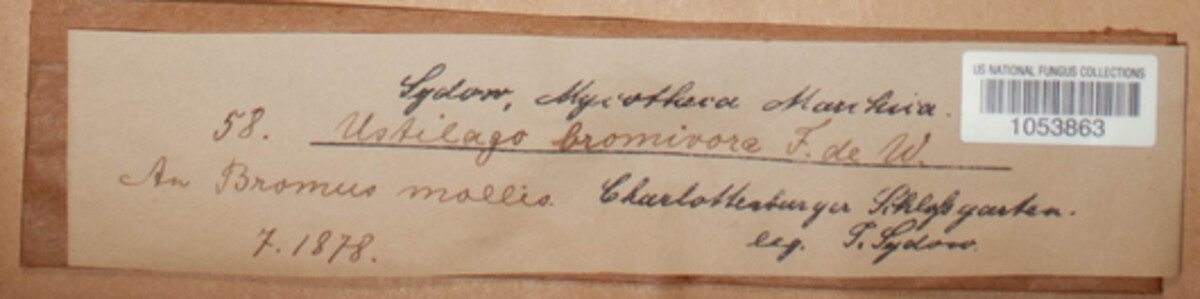 Sydow, Mycotheca Marchica.
US NATIONAL FUNGUS COLLECTIONS
1053863
58. Ustilago bromivora F. de W.
An Bromus mollis. Charlottenburger Schloßgarten.
7. 1878. leg. P. Sydow.